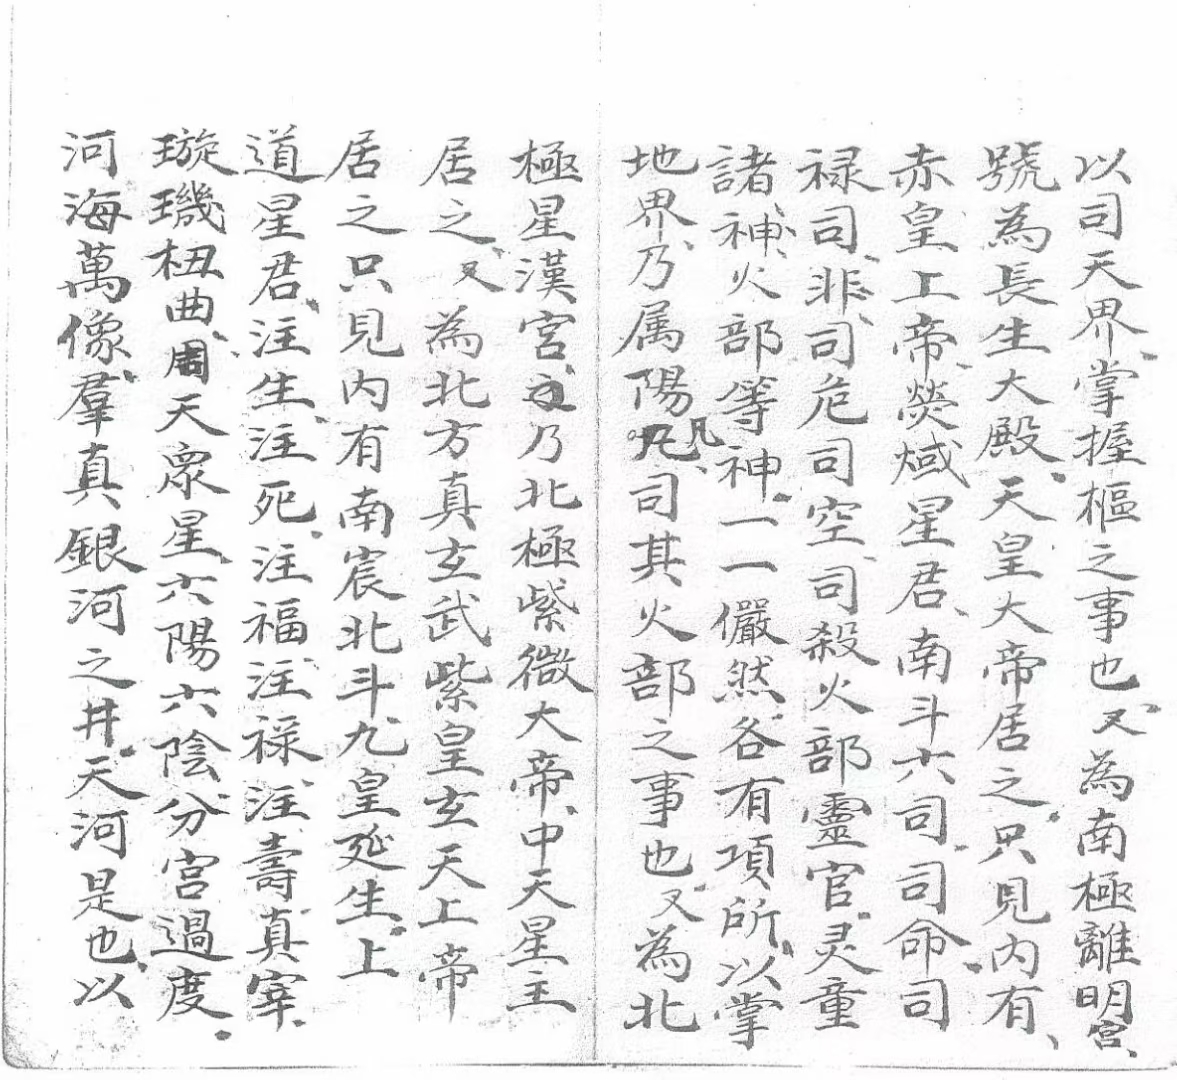 以司天界、掌握樞之事也、又為南極離明宮、
號為長生大殿、天皇大帝居之、只見内有、
赤皇上帝、熒惑星君、南斗六司、司命司
禄司、非司危司空、司殺火部靈官、灵童
諸神、火部等神、一一儼然、各有項所、以掌
地界、乃属陽九凡、司其火部之事也、又為北
極星漢宮、乃北極紫微大帝、中天星主
居之、又為北方真玄武紫皇玄天上帝
居之只見内有南宸北斗九皇延生、上
道星君、注生、注死、注福、注禄、注壽真宰、
璇璣杻曲、周天眾星、六陽六陰、分宮過度、
河海萬像、羣真銀河之井、天河是也、以